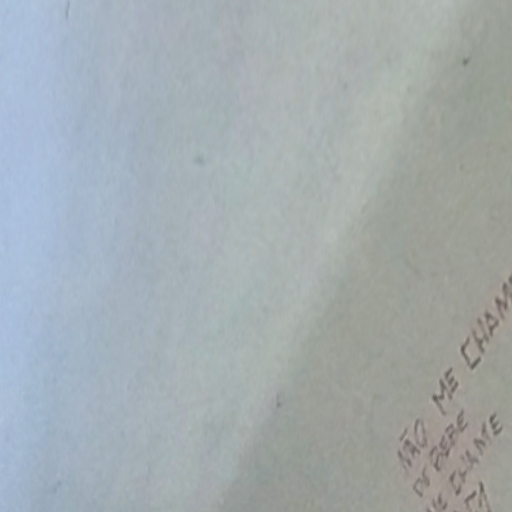 NÃO ME CHAM
DE BEBE
ME CHAME